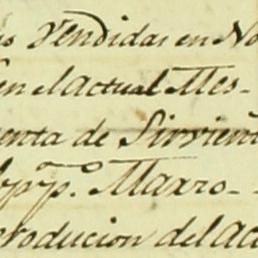 as Vendidas en No
en el actual Mes-
enta de Sirvien
Marro-
roducion del ac